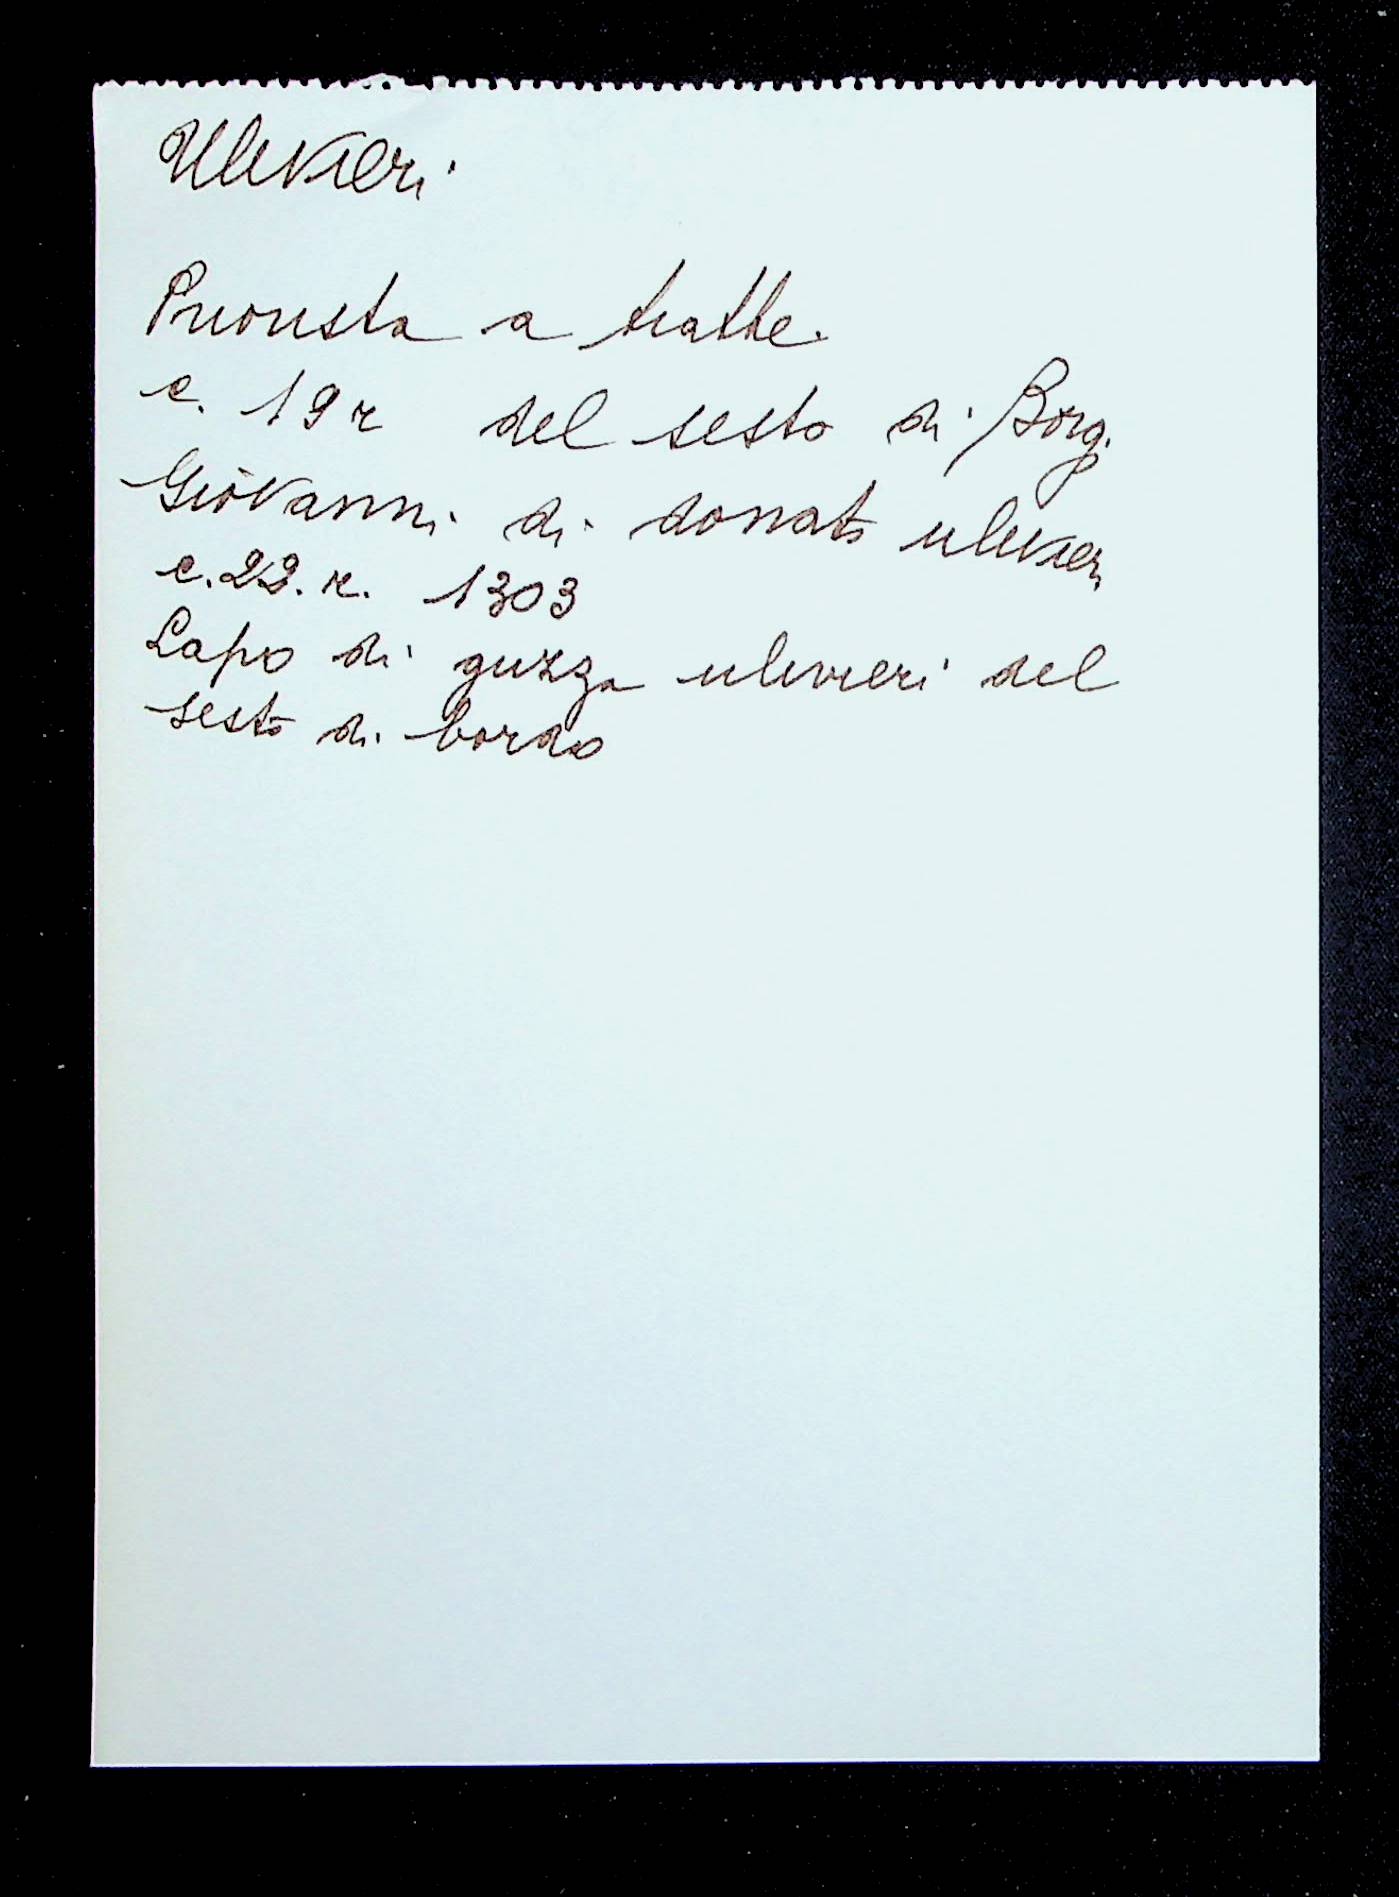 Ulivieri
Priorista a tratte.
c. 19 r del sesto di Borg.
Giovanni di donato ulivieri
c. 22. r. 1303
Lapo di guzza ulivieri del
sesto di bordo